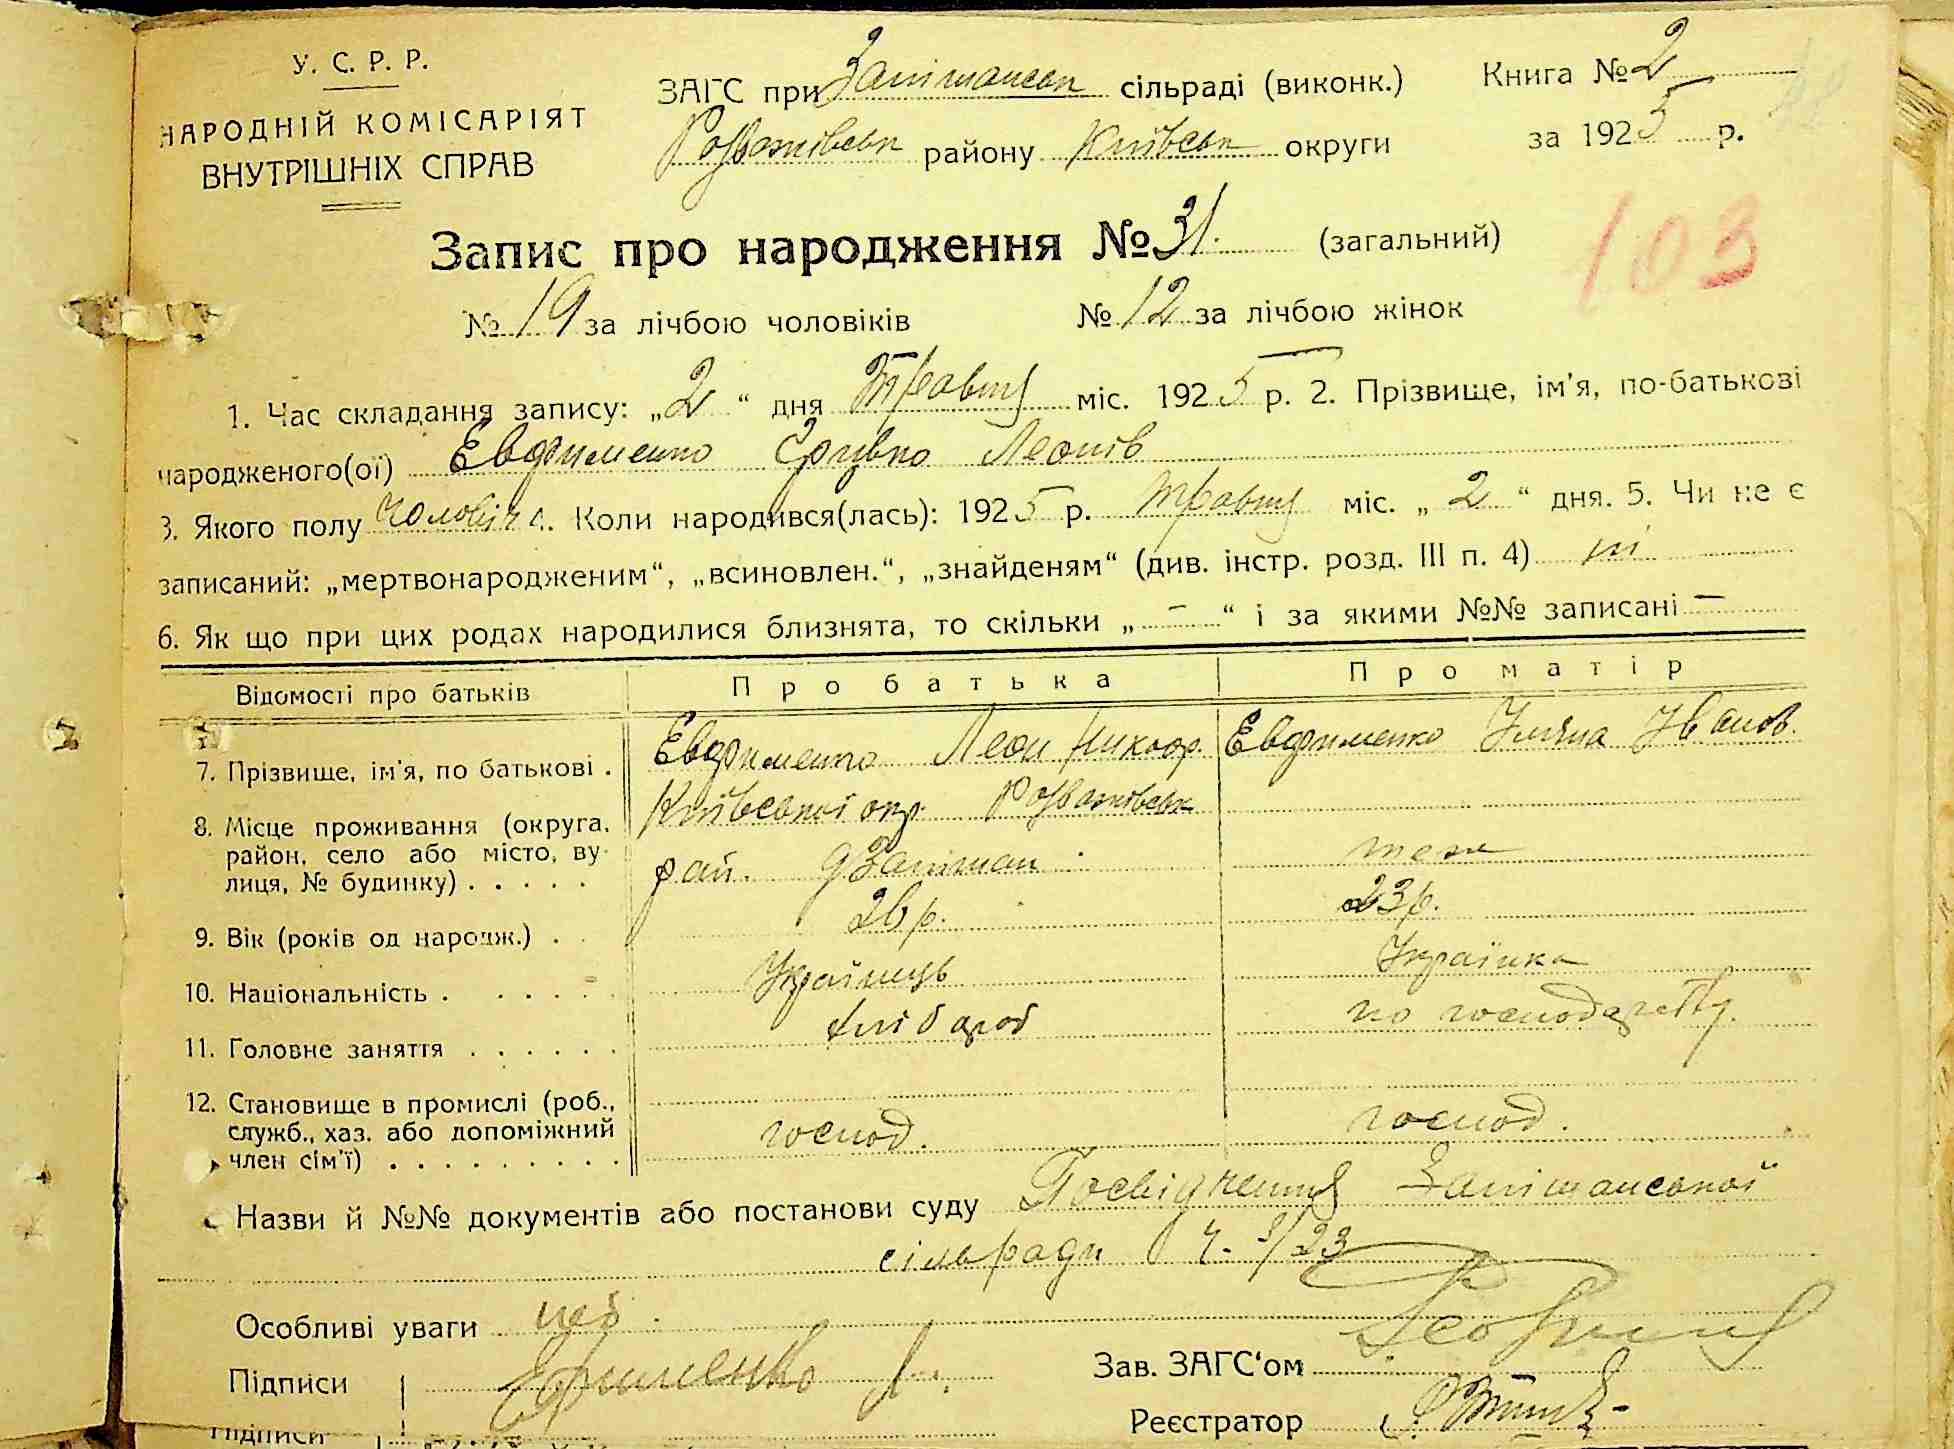 У. С. Р. Р.
НАРОДНІЙ КОМІСАРІЯТ
ВНУТРІШНІХ СПРАВ
ЗАГС при Запішанськ сільраді (виконк.) Книга № 2
Розважівськ району Київськ округи за 1925 р.
103
Запис про народження № 31. (загальний)
№ 19 за лічбою чоловіків № 12 за лічбою жінок
1. Час складання запису: „2“ дня Травня міс. 1925 р. 2. Прізвище, ім'я, по-батькові
народженого(ої) Евфименко Леонів
3. Якого полу чоловіч. Коли народився(лась): 1925 р. Травня міс. „2“ дня. 5. Чи не є
записаний: „мертвонародженим“, „всиновлен.“, „знайденям“ (див. інстр. розд. III п. 4) ні
6. Як що при цих родах народилися близнята, то скільки „—“ і за якими №№ записані —
Відомості про батьків Про батька Про матір
7. Прізвище, ім'я, по батькові . Евфименко Леон Никифр. Евфименко Уляна Іванов.
8. Місце проживання (округа, район, село або місто, вулиця, № будинку) . . . . . Київської окр. Розважівськ
рай. Запішан теж
9. Вік (років од народж.) . . 26 р. 23 р.
10. Національність . . . . . . Українець Українка
11. Головне заняття . . . . . . хлібороб по господарству.
12. Становище в промислі (роб., служб., хаз. або допоміжний член сім'ї) . . . . . . . . . господ. господ.
Назви й №№ документів або постанови суду Посвідчення Запішанської
сільради Ч. 3/23
Особливі уваги
Підписи Єфименко Л.
Зав. ЗАГС'ом
Реєстратор
Підписи